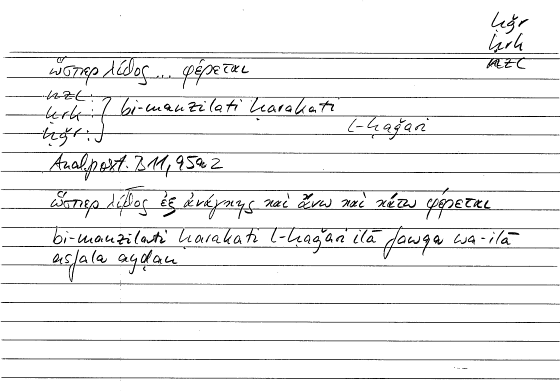 ḥǧr
ḥrk
nzl
ὥσπερ λίθος ... φέρεται
nzl:
ḥrk: } bi-manzilati ḥarakati
ḥǧr: l-ḥaǧari
Anal.post. B 11, 95a2
ὥσπερ λίθος ἐξ ἀνάγκης καὶ ἄνω καὶ κάτω φέρεται
bi-manzilati ḥarakati l-ḥaǧari ilā fawqa wa-ilā
asfala ayḍan